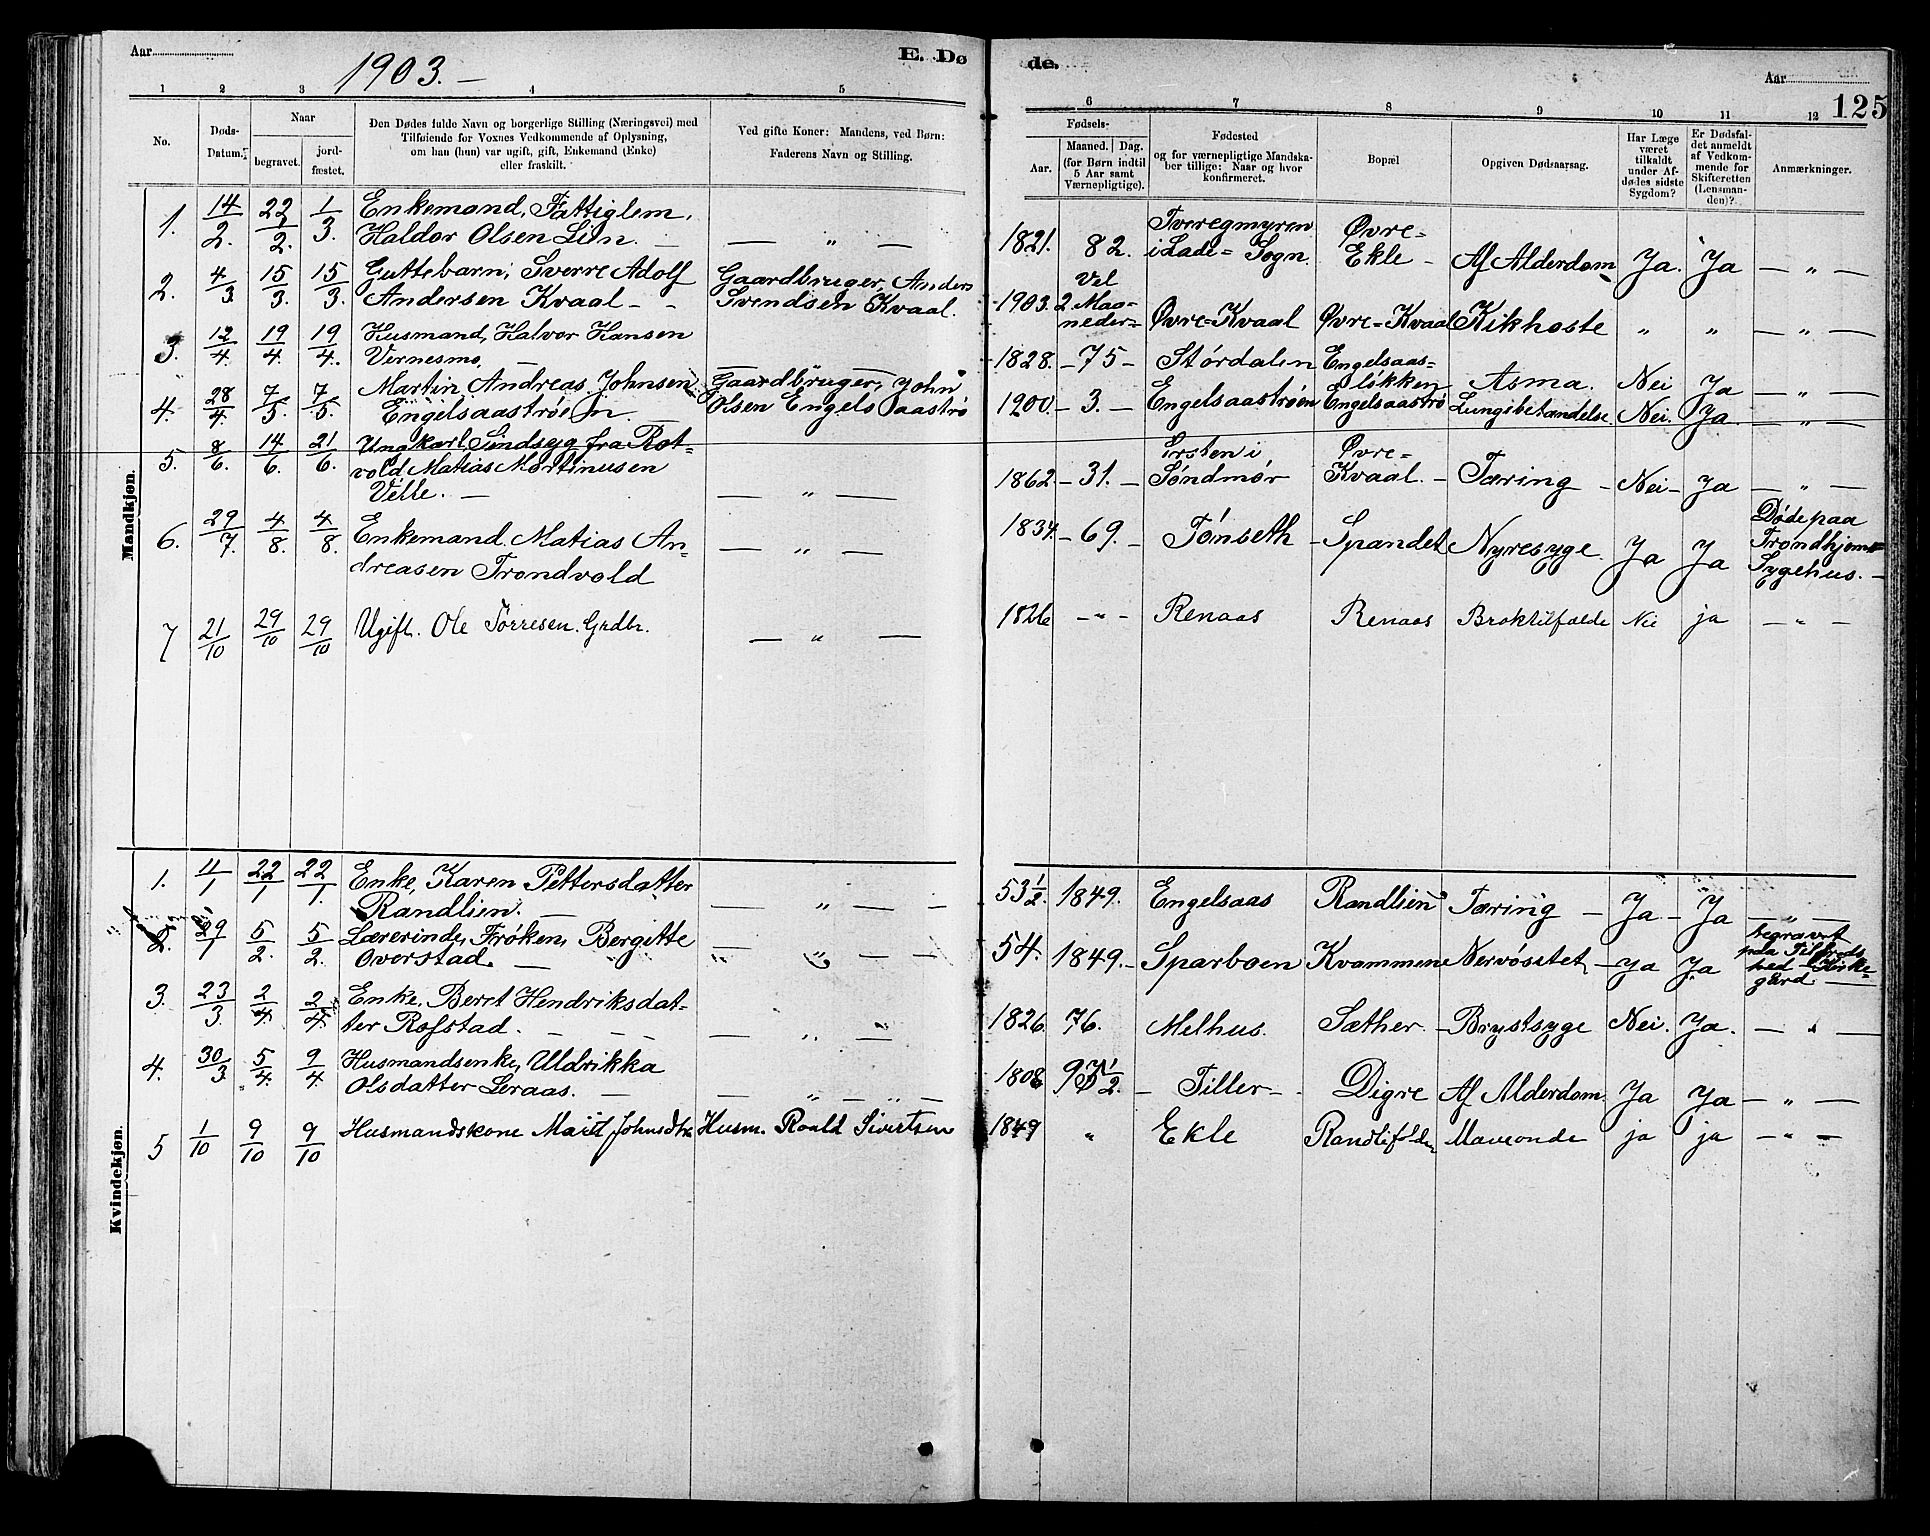 Aar
1903. —
E. Dø
de.
Aar
125
1 2 3 4 5 6 7 8 9 10 11 12
No.
Døds-
Datum.
Naar
begravet.
jord-
fæstet.
Den Dødes fulde Navn og borgerlige Stilling (Næringsvei) med
Tilføiende for Voxnes Vedkommende af Oplysning,
om han (hun) var ugift, gift, Enkemand (Enke)
eller fraskilt.
Ved gifte Koner: Mandens, ved Børn:
Faderens Navn og Stilling.
Fødsels-
Aar.
Maaned. Dag.
(for Børn indtil
5 Aar samt
Værnepligtige).
Fødested
og for værnepligtige Mandska-
ber tillige: Naar og hvor
konfirmeret.
Bopæl
Opgiven Dødsaarsag.
Har Læge
været
tilkaldt
under Af-
dødes sidste
Sygdom?
Er Dødsfal-
det anmeldt
af Vedkom-
mende for
Skifteretten
(Lensman-
den)?
Anmærkninger.
Mandkjøn.
1. 14/2. 22/2. 1/3. Enkemand, Fattiglem,
Haldor Olsen Lien. — „ — 1821. 82. Tveregmyren
i Lade= Sogn. Øvre=
Ekle — Af Alderdom Ja. Ja — „ —
2. 4/3 15/3. 15/3. Guttebarn, Sverre Adolf
Andersen Kvaal — Gaardbruger, Anders
Svendsen Kvaal. 1903. Vel
2 Maa=
neder= Øvre=Kvaal Øvre=Kvaal Kikhoste „ „ — „ —
3. 12/4. 19/4. 19/4. Husmand, Halvor Hansen
Vernesmo, — 1828. 75 Størdalen Engelsaas=
løkken Asma. Nei Ja — „ —
4. 28/4. 7/5. 7/5. Martin Andreas Johnsen
Engelsaastrøen Gaardbruger, John
Olsen Engelsaastrø 1900. 3. Engelsaastrøen Engelsaastrø Lungebetændelse Nei. Ja. — „ —
5. 8/6. 14/6. 21/6. Ungkarl, Sindsyg fra Rot-
vold Matias Martinusen
Velle. — — „ — 1862. 31. Ersten i
Søndmør Øvre=
Kvaal. Tæring Nei Ja — „ —
6. 29/7. 4/8. 4/8. Enkemand Matias An-
dreasen Trondvold — „ — 1834. 69. Tønseth Spandet Nyresyge. Ja Ja Døde paa
Trondhjems
Sygehus. —
7 21/10 29/10 29/10 Ugift. Ole Torresen. Grdbr. — „ — 1826 — „ — Renaas Renaas Broktilfælde Nei ja — „ —
Kvindekjøn.
1. 11/1 22/1 22/1. Enke, Karen Pettersdatter
Randlien. — — „ — 53 1/2. 1849. Engelsaas Randlien Tæring — Ja — Ja — „ —
2. 29/1 5/2. 5/2. Lærerinde, Frøken, Bergitte
Overstad. — — „ — 54. 1849. Sparboen Kvammen Nervøsitet Ja Ja begravet
paa
gård —
3. 23/3. 2/4. 2/4. Enke, Beret Hendriksdat-
ter Rofstad. — — „ — 1826. 76. Melhus. Sæther. Brystsyge Nei. Ja. — „ —
4. 30/3. 5/4. 9/4 Husmandsenke, Uldrikka
Olsdatter Leraas. — — „ — 1808 Tiller Digre Af Alderdom. Ja Ja — „ —
5 1/10 9/10 9/10 Husmandskone Marit Johnsdtr Husm. Roald Sivertsen 1849 „ Ekle Maveonde ja ja — „ —